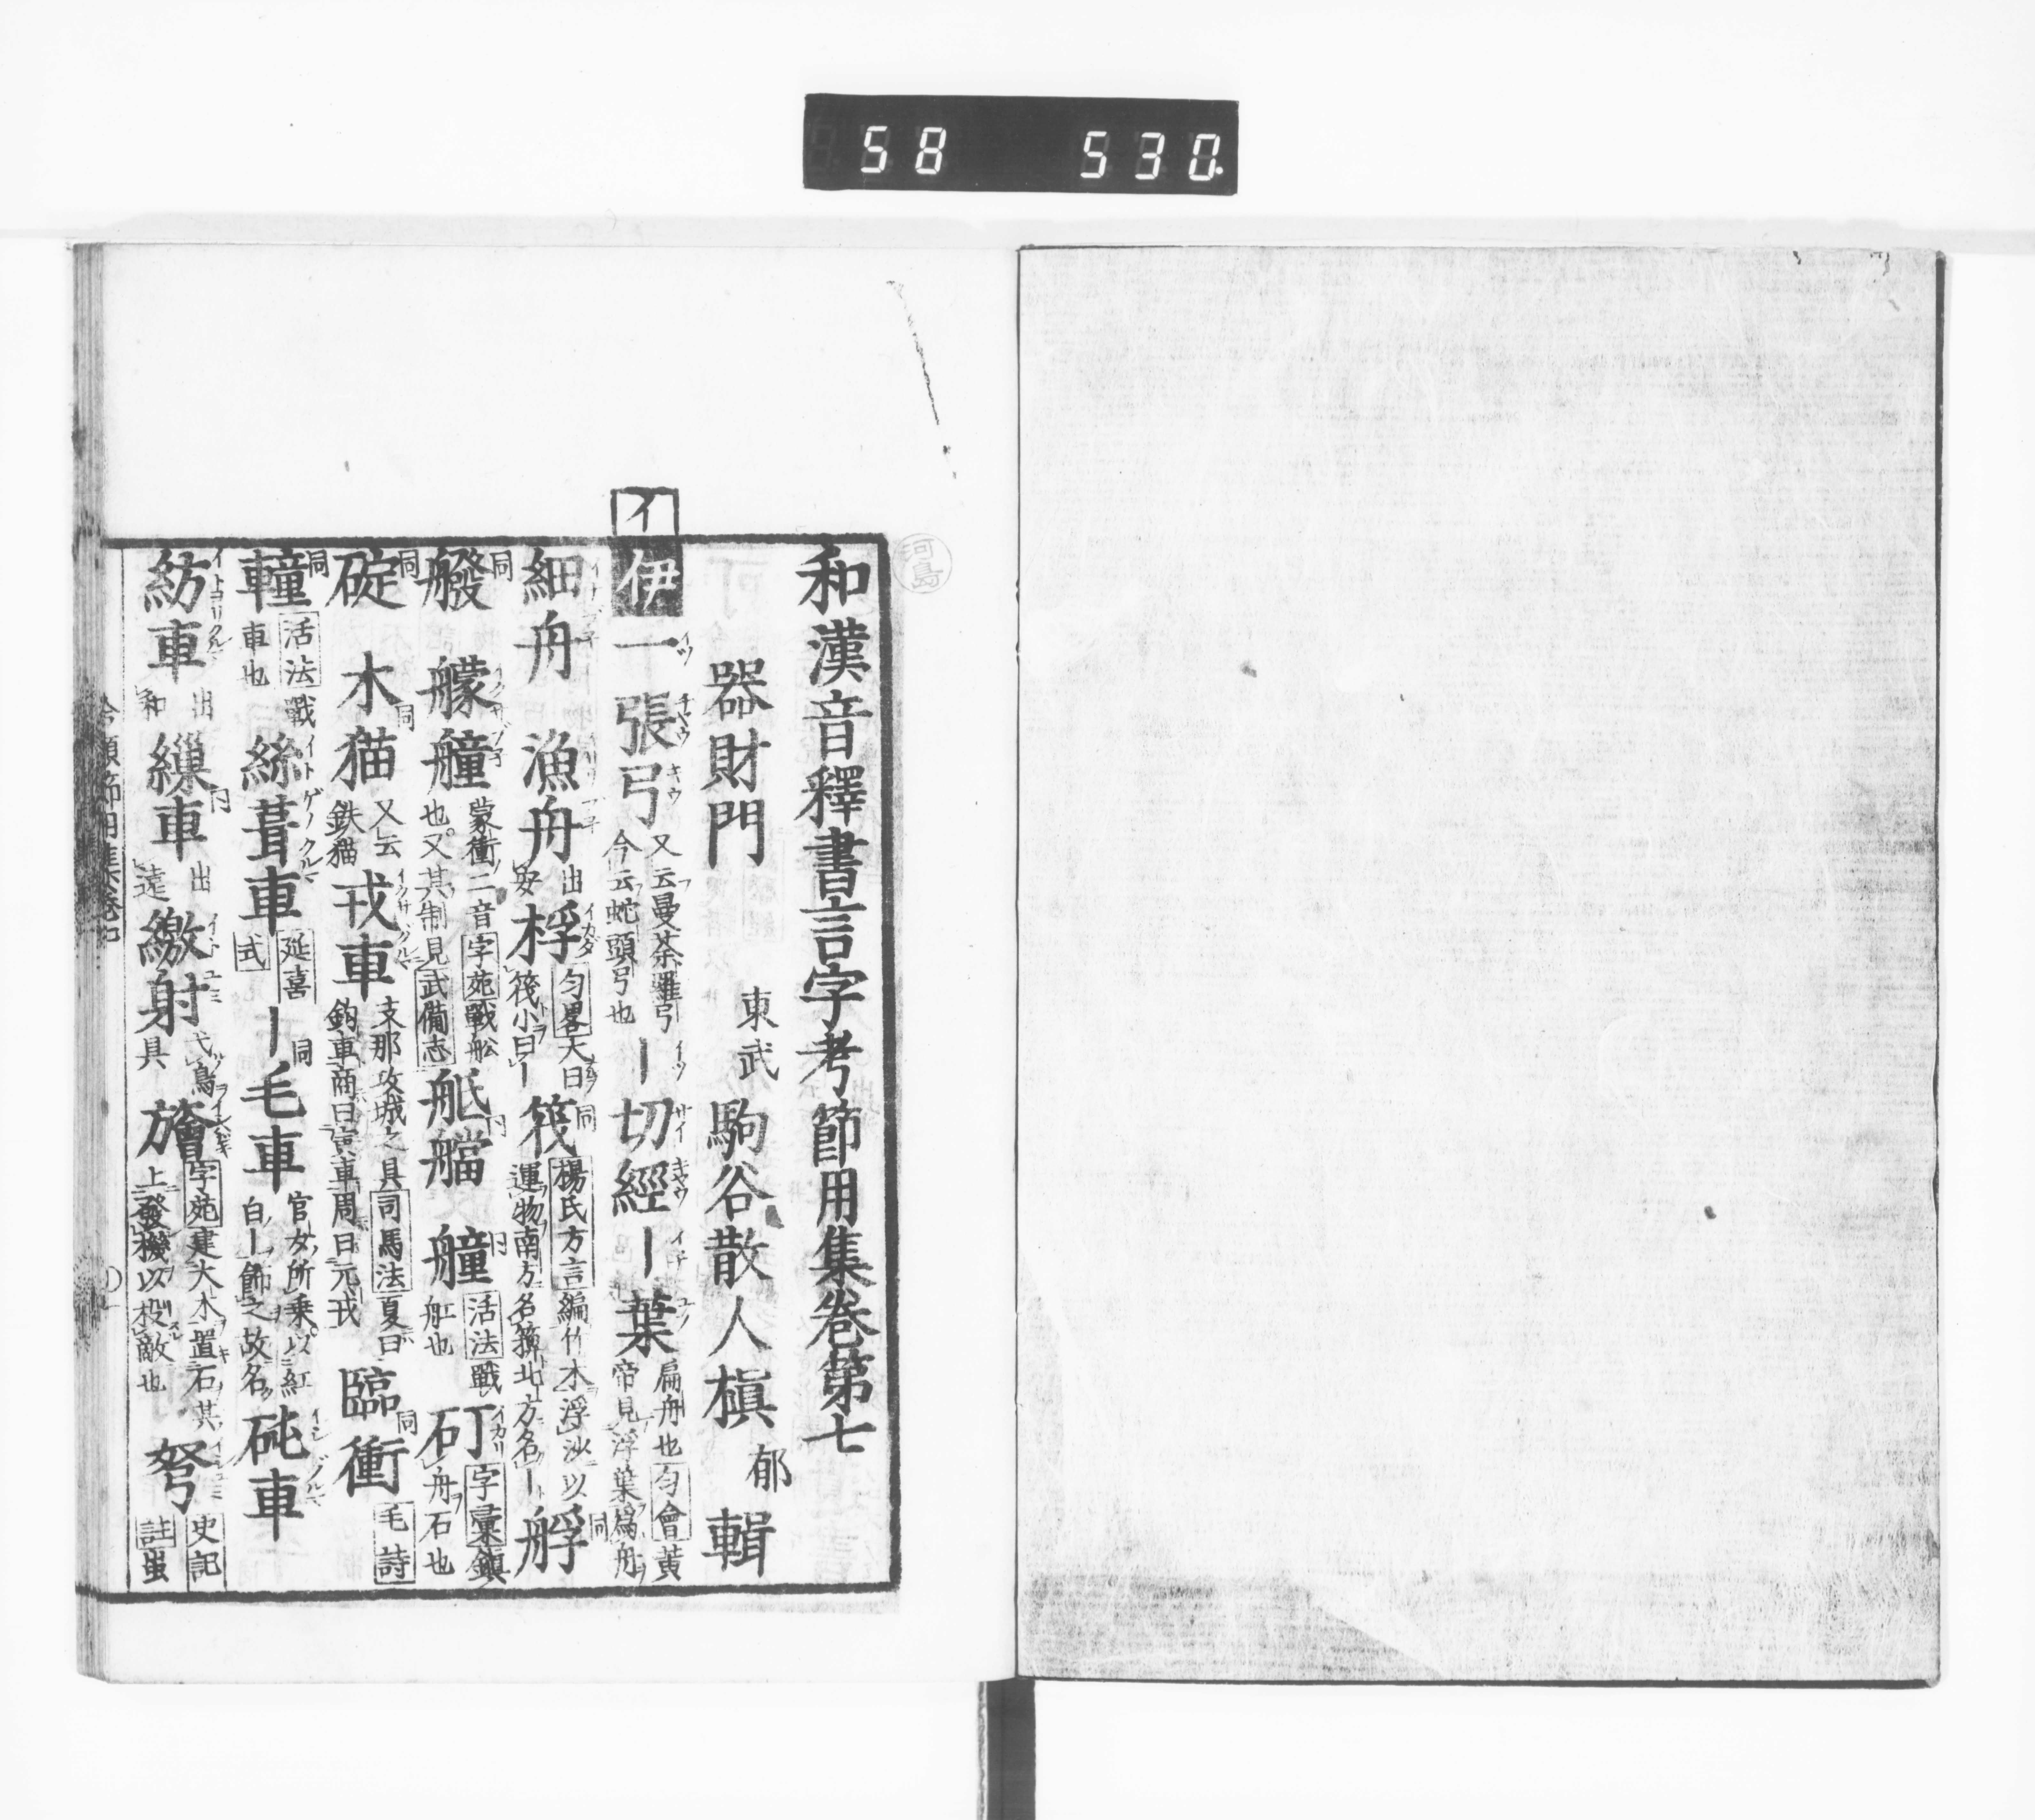 58 530
河島
和漢音釋書言字考節用集卷第七
器財門 東武 駒谷散人槇 郁 輯
イ
伊 一張弓 又云曼荼羅弓 今云蛇頭弓也 ー切經 ー葉 扁舟也 匀會 黃帝見浮葉爲舟
細舟 漁舟 出安 桴 匀畧 大曰筏小曰ー 筏 同 楊氏方言 編竹木浮沙以運物南方名簰北方名ー 艀 同
艬 同 艨艟 蒙衝二音 字苑 戰舩也又其制見 武備志 舧艡 同 艟 同 活法 戰舡也 矴 イカリ 字彙 鎭舟石也
碇 同 木猫 同 又云鉄猫 戎車 支那攻城之具 司馬法 夏曰鈎車商曰寅車周曰元戎 臨衝 同 毛詩
䡴 同 活法 戰車也 絲葺車 イトゲノクルマ 延喜式 ー毛車 同 官女所乘以紅白ー飾之故名 砘車
紡車 出和 繅車 同 出遠 繳射 弋鳥具 旝 字苑 建大木置石其上發機以投敵也 弩 史記註